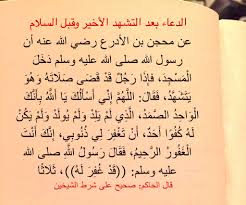 الدعاء بعد التشهد الأخير وقبل السلام
عن محجن بن الأدرع رضي الله عنه أن
رسول الله صلى الله عليه وسلم دَخَلَ
الْمَسْجِدَ، فَإِذَا رَجُلٌ قَدْ قَضَى صَلَاتَهُ وَهُوَ
يَتَشَهَّدُ، فَقَالَ: اللَّهُمَّ إِنِّي أَسْأَلُكَ يَا اللَّهُ
الْوَاحِدُ الصَّمَدُ، الَّذِي لَمْ يَلِدْ وَلَمْ يُولَدْ وَلَمْ يَكُنْ
لَهُ كُفُوًا أَحَدٌ، أَنْ تَغْفِرَ لِي ذُنُوبِي، إِنَّكَ أَنْتَ
الْغَفُورُ الرَّحِيمُ، فَقَالَ رَسُولُ اللَّهِ صلى الله
عليه وسلم: ((قَدْ غُفِرَ لَهُ))، ثَلَاثًا
قال الحاكم: صحيح على شرط الشيخين